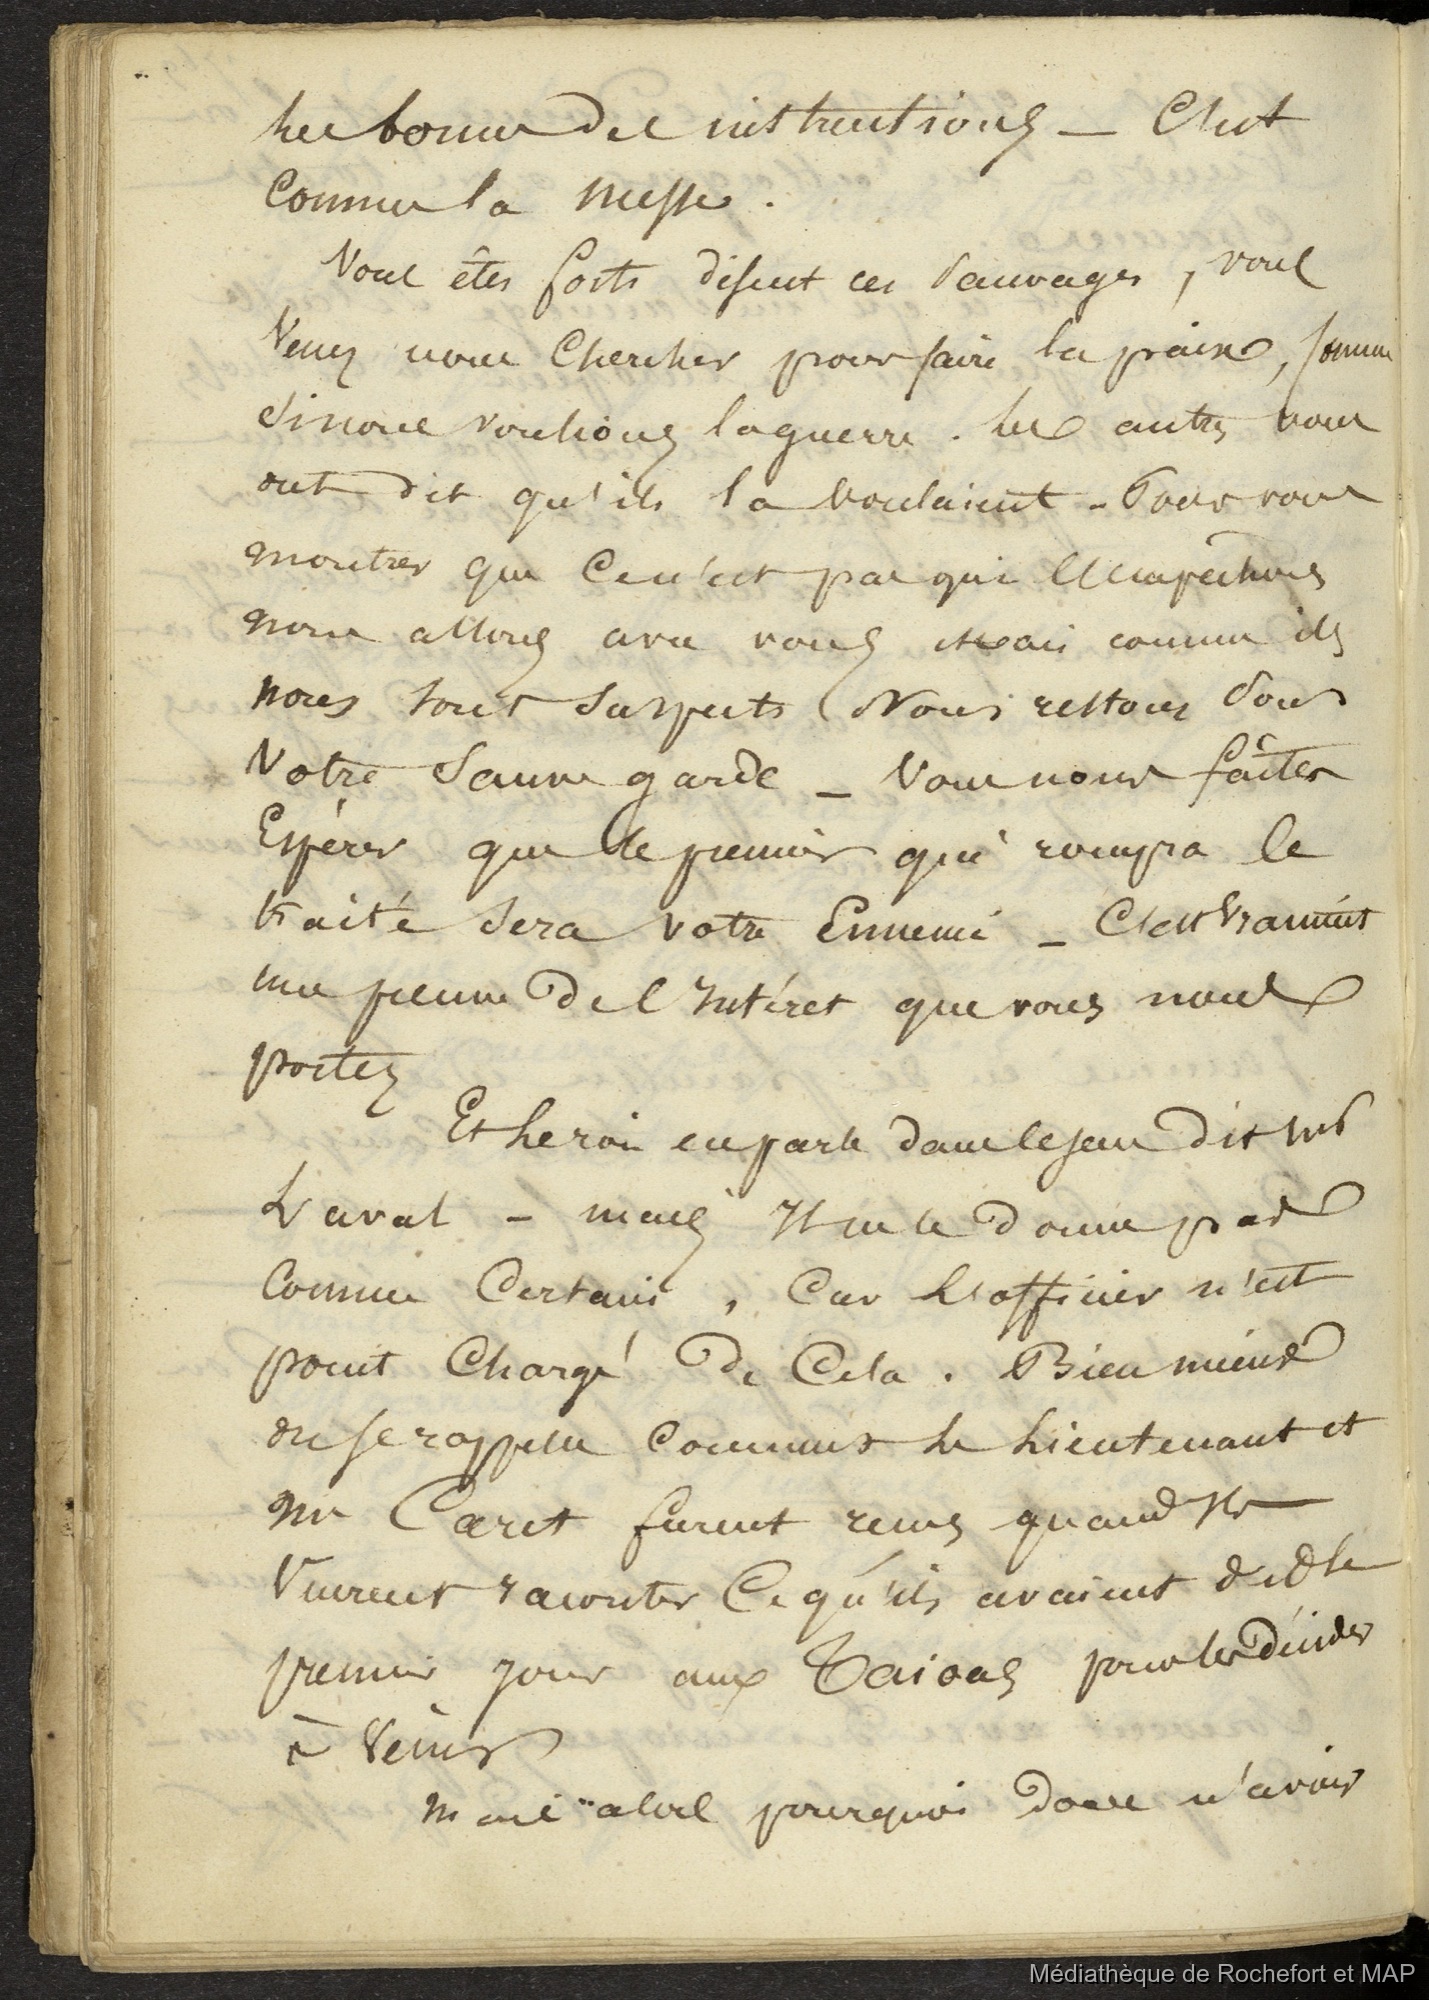 les bornes des instructions — C'est
Comme la Messe.
Vous êtes forts disent ces Sauvages, vous
Venez nous Chercher pour faire la paix, comme
si nous voulions la guerre. Les autres vous
ont dit qu'ils la voulaient - Pour vous
montrer que Ce n'est pas qui
nous allons avec vous Mais comme ils
nous sont suspects Nous restons Sous
Votre Sauve garde — Vous nous faîtes
Espérer que le premier qui rompra le
traité sera votre Ennemi — C'est Vraiment
une preuve De l'Intéret que vous nous
portez
Et le roi en parle dans le sien dit Mr
Laval - mais Il ne le donne pas
Comme Certain, Car L'officier n'est
point Chargé De Cela. Bien mieux
on se rappelle comment le Lieutenant et
Mr Caret furent reçus quand Ils
Vinrent raconter Ce qu'ils avaient dit le
premier jour aux Taioas pour les Décider
à Venir
Mais alors pourquoi donc n'avoir
Médiathèque de Rochefort et MAP